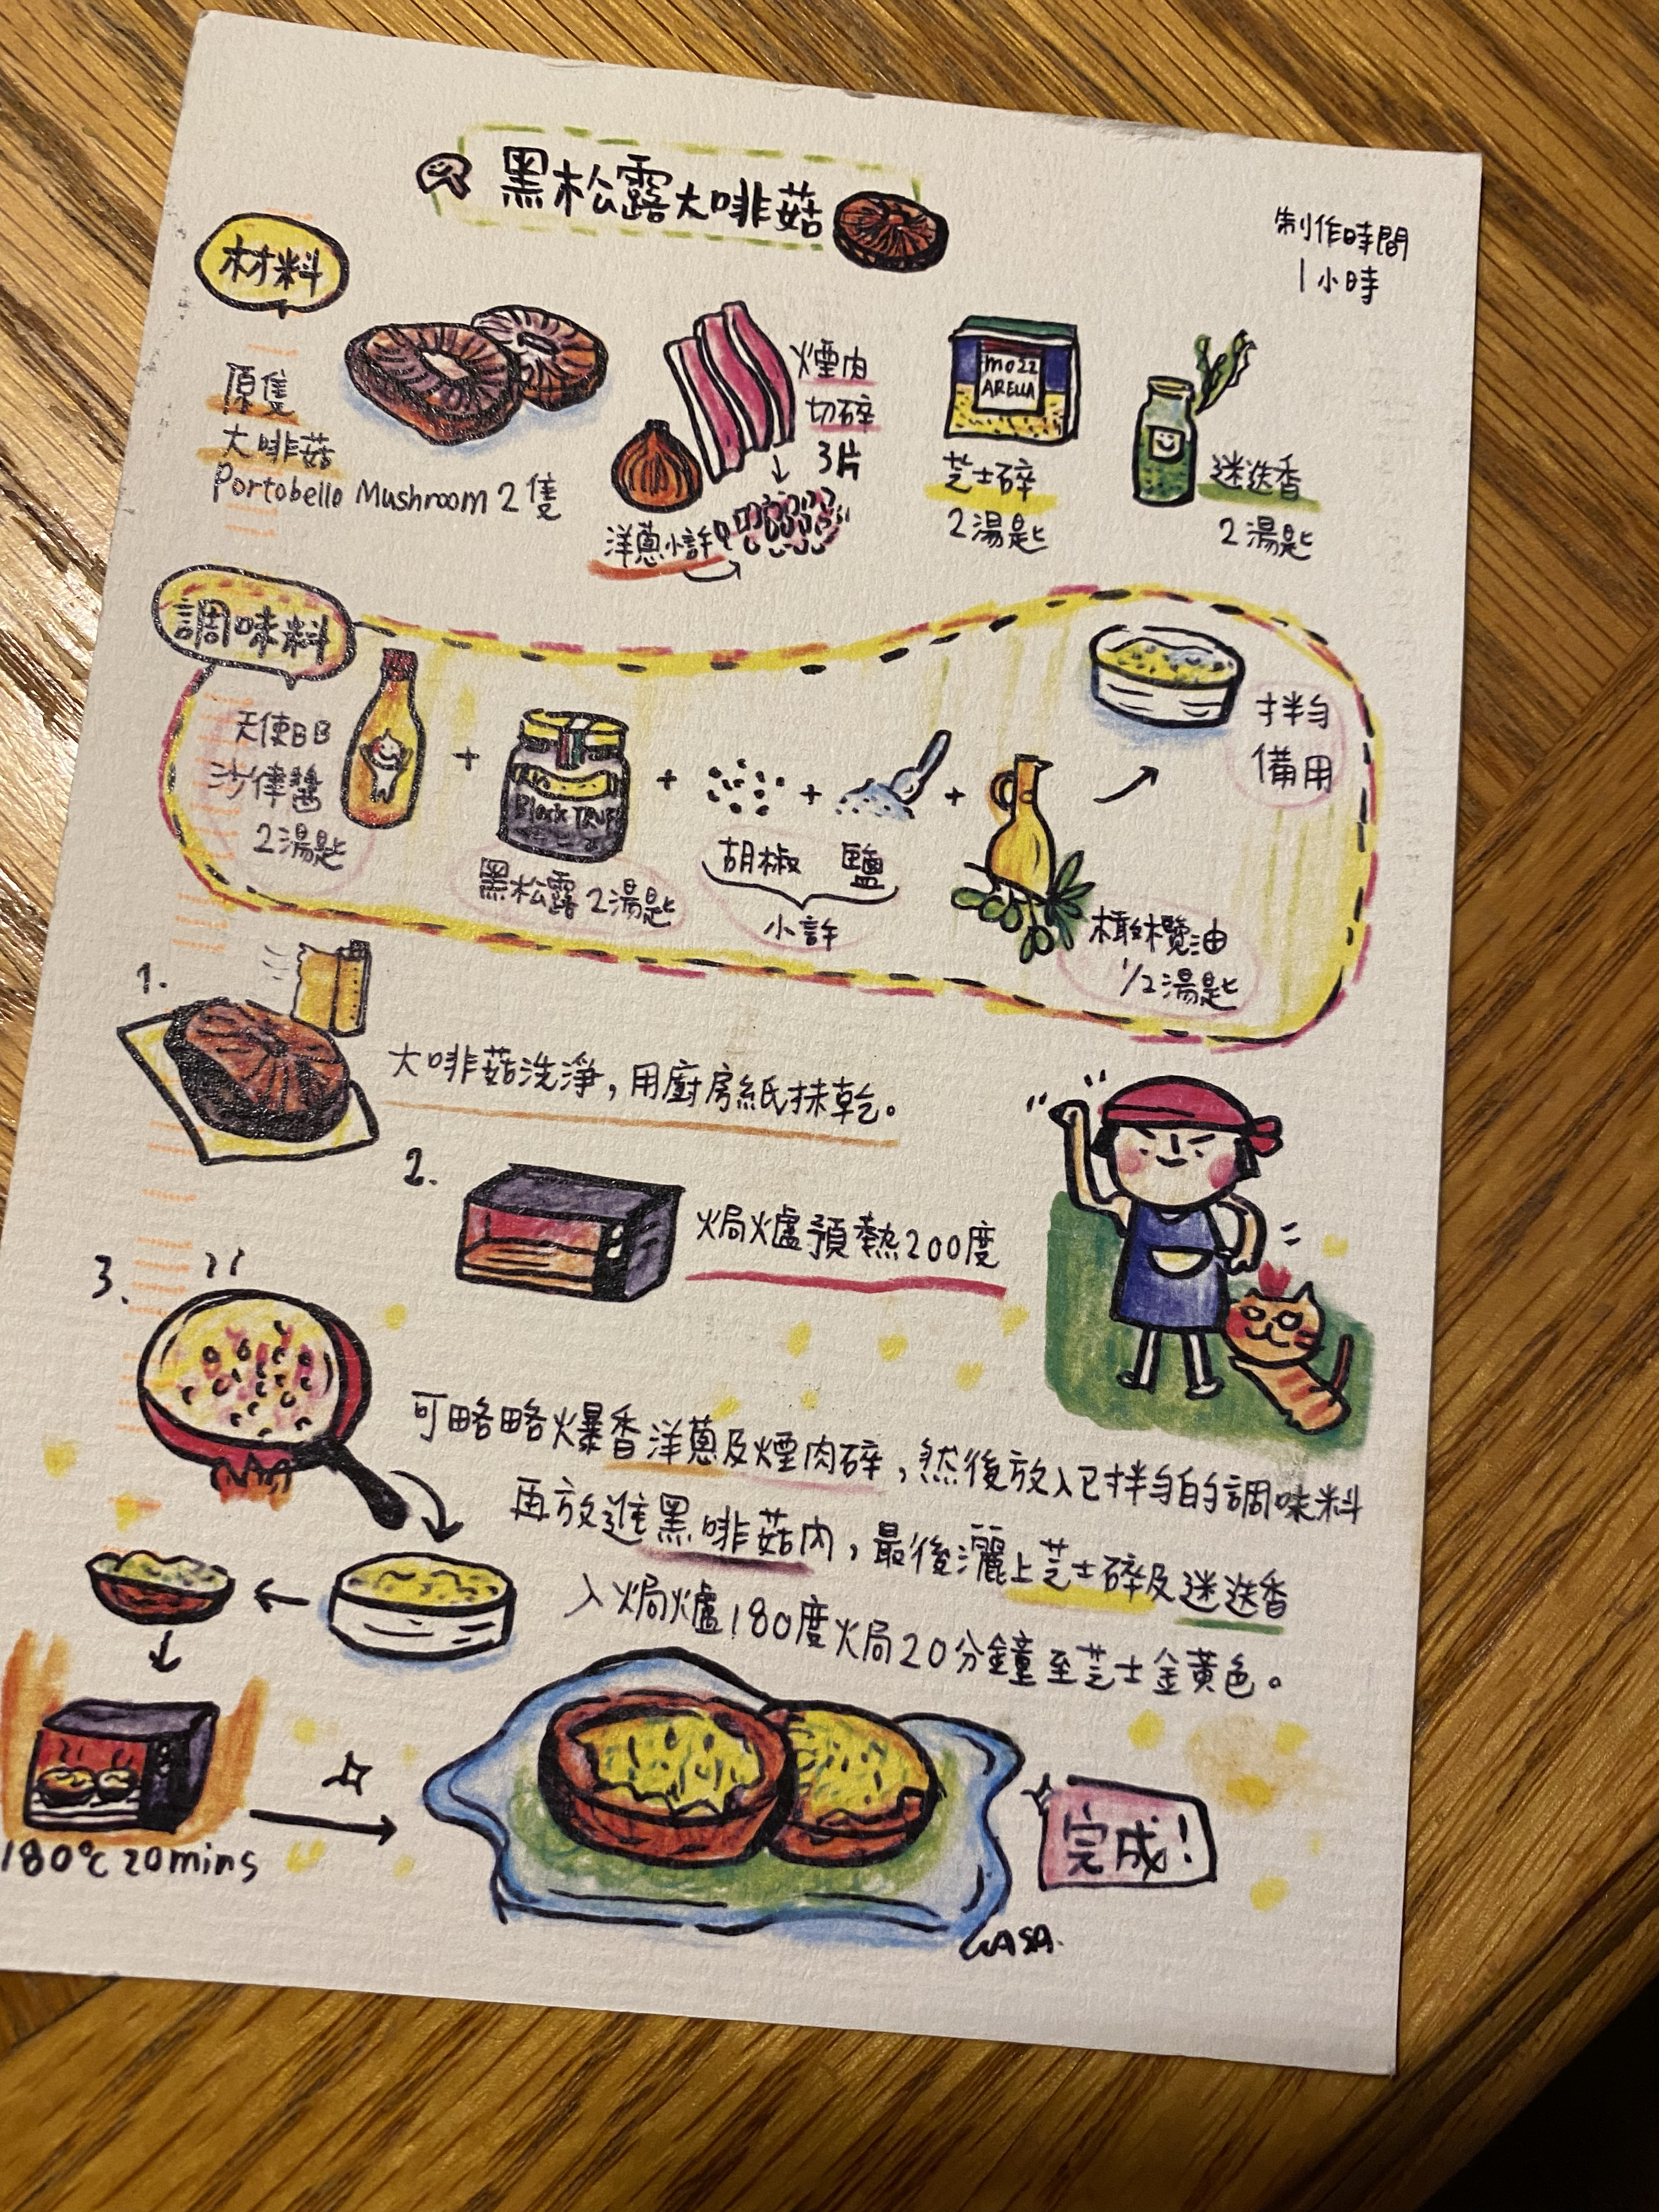 黑松露大啡菇
制作時間
1小時
材料
原隻
大啡菇
Portobello Mushroom 2隻
煙肉
切碎
3片
洋蔥小許
MOZZ
ARELLA
芝士碎
2湯匙
迷迭香
2湯匙
調味料
天使BB
沙律醬
2湯匙
+
Black TRUF
黑松露 2湯匙
+
胡椒
+
鹽
小許
+
橄欖油
1/2湯匙
拌匀
備用
1.
大啡菇洗淨，用廚房紙抹乾。
2.
焗爐預熱200度
3.
可略略爆香洋蔥及煙肉碎，然後放入已拌匀的調味料
再放進黑啡菇內，最後灑上芝士碎及迷迭香
入焗爐180度焗20分鐘至芝士金黃色。
180°C 20mins
完成！
WASA.